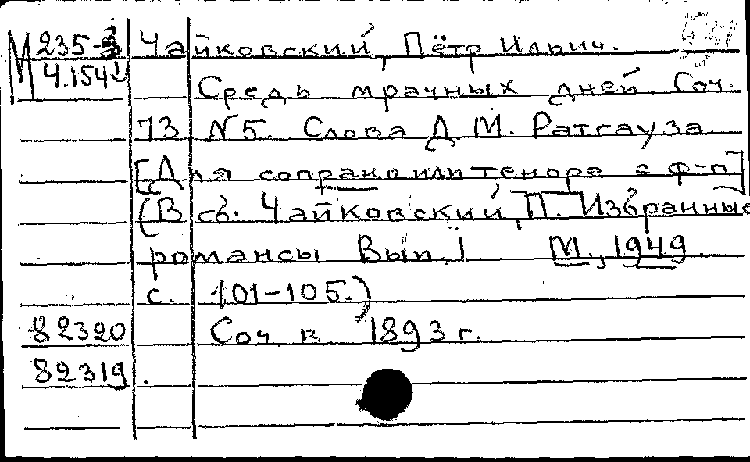 М 235-3 Чайковский, Пётр Ильич.
Ч.154 Средь мрачных дней. Соч.
73 №5. Слова Д. М. Ратгауза
[Для сопрано или тенора с ф-п]
(В сб. Чайковский, П. Избранные
романсы Вып. I М., 1949
с. 101-105.)
82320 Соч. в 1893 г.
82319.